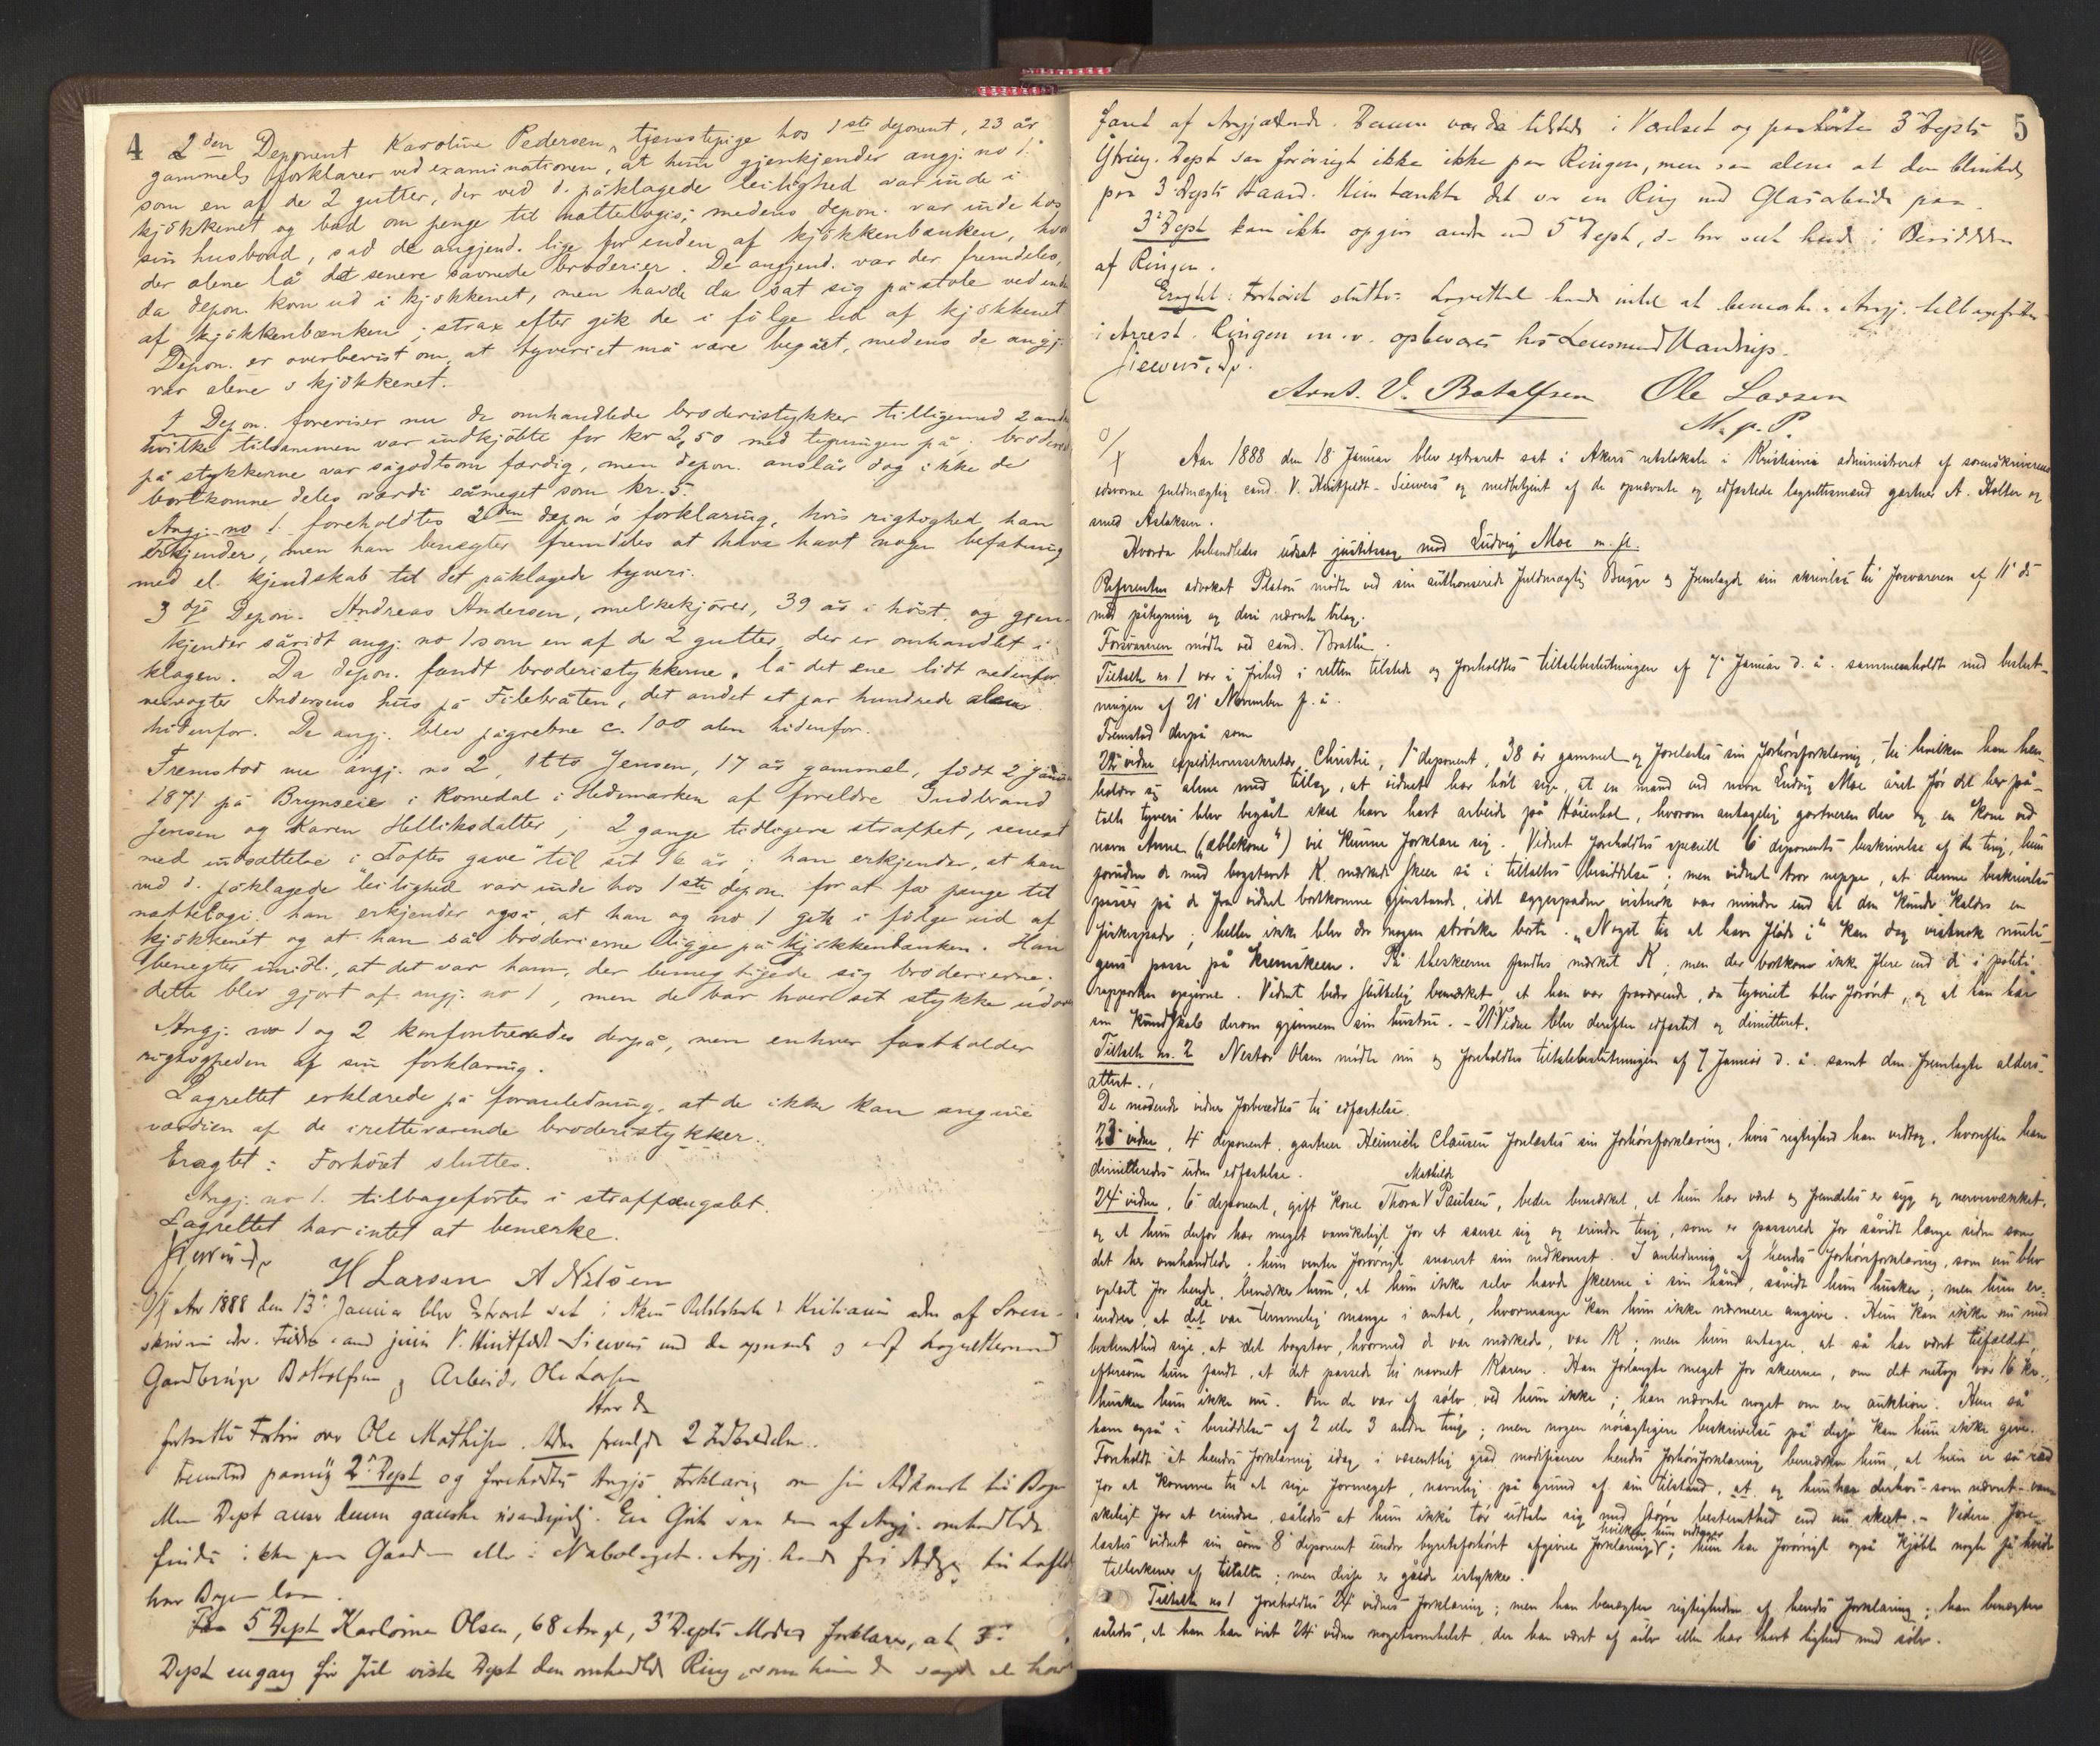 4
2den Deponent Karoline Pedersen, tjenestepige hos 1ste deponent, 23 år
gammel, forklarer ved examinationen, at hun gjenkjender angj. no 1.
som en af de 2 gutter, der ved d. påklagede leilighed var inde i
kjökkenet og bad om penge til nattelogis; medens depon. var inde hos
sin husbond, sad de angjend. lige for enden af kjökkenbænken, hvor
der alene lå det senere savnede broderier. De angjend. var der fremdeles,
da depon. kom ud i kjökkenet, men havde da sat sig på stole ved enden
af kjökkenbænken; strax efter gik de i fölge ud af kjökkenet
Depon. er overbevist om, at tyveriet må være begået, medens de angj.
var alene i kjökkenet.
1 Depon. foreviser nu de omhandlede broderistykker tilligemed 2 andre
hvilke tilsammen var indkjöbte for kr 2,50 med tegningen på; broderiet
på stykkerne var sågodtsom færdig, men depon. anslår dog ikke de
bortkomne deles værdi såmeget som kr. 5.
Angj. no 1. foreholdtes 2den depon's forklaring, hvis rigtighed han
erkjender, men han benægter fremdeles at have havt nogen befatning
med el. kjendskab til det påklagede tyveri.
3dje Depon. Andreas Andersen, melkekjörer, 39 år i höst, og gjen-
kjender såvidt angj. no 1 som en af de 2 gutter, der er omhandlet i
klagen. Da depon. fandt broderistykkerne, lå det ene lidt nedenfor
veivogter Andersens hus på Filebråten, det andet et par hundrede alen
hidenfor. De angj. blev pågrebne c. 100 alen hidenfor.
Fremstod nu angj. no 2, Otto Jensen, 17 år gammel, födt 2 januar
1871 på Brynseie i Romedal i Hedemarken af foreldre Gudbrand
Jensen og Karen Helliksdatter; 2 gange tidligere straffet, senest
med indsættelse i "Toftes gave" til sit 16 år; han erkjender, at han
ved d. påklagede leilighed var inde hos 1ste depon. for at få penge til
nattelogi. han erkjender også, at han og no 1 gik i fölge ud af
kjökkenet og at han så broderierne ligge på kjökkenbænken. Han
benegter imidl., at det var ham, der bemægtigede sig broderierne;
dette blev gjort af angj. no 1, men de bar hver sit stykke udover
Angj. no 1 og 2 konfronteredes derpå, men enhver fastholder
rigtigheden af sin forklaring.
Lagrettet erklærede på foranledning, at de ikke kan angive
værdien af de iretteværende broderistykker.
Eragtet: Forhöret sluttes.
Angj. no 1. tilbageförtes i straffængslet.
Lagrettet har intet at bemerke.
H Larsen A Nilsen
Aar 1888 den 13de Januar blev Extraret sat i Akers Retslokale i Kristiania adm af Soren-
skriveren edv. Fuldm cand juris V. Huitfeldt Siewers med de opnævnte og edf Lagrettemænd
Gaardbruger Botolfsen og Arbeider Ole Larsen
fortsatte Forhör over Ole Mathisen. fremlagde 2
Fremstod paany 2det Dept og foreholdtes Angjs Forklaring om sin Adkomst til Bogen
Men Dept anser denne ganske
findes ikke paa Gaarden eller i Nabolaget. Angj. havde fri Adgang til Loftet
hvor Bogen laa.
5 Dept Karoline Olsen, 68 Aar gl, 3' Depts Moder forklarer, at 3'
Dept engang för Jul viste Dept den omhandlede Ring, som hun da sagde at have
5
faaet af Angjældende. Denne var da tilstede i Værelset og paahörte 3' Depts
Ytring. Dept saa forövrigt ikke ikke paa Ringen, men saa alene at den blinkede
paa 3' Depts Haand. Hun tænkte det var en Ring med Glasarbeide paa.
3' Dept kan ikke opgive andre end 5' Dept, der har seet hende i Besiddelse
af Ringen.
Eragtet: Forhöret sluttes. Lagrettet havde intet at bemerke. Angj. tilbageförtes
i Arrest. Ringen m. v. opbevares hos Lensmand
Siewers, Dr.
Arnt. V. Botolfsen Ole Larsen
M. p. P.
Aar 1888 den 18 Januar blev extraret sat i Akers retslokale i Kristiania administreret af sorenskriverens
edsvorne fuldmægtig cand. V. Huitfeldt-Siewers og medbetjent af de opnævnte og edfæstede lagrettesmænd gartner A. Holter og
smed Aslaksen.
Hvorda behandledes udsat justitssag mod Ludvig Moe m. fl.
Referenten advokat Platou mödte ved sin authoriserede fuldmægtig Bugge og fremlagde sin skrivelse til forsvareren af 11' ds
med påtegning og deri nævnte bilag.
Forsvareren mödte ved cand. Bratlie.
Tiltalte no. 1 var i frihed i retten tilstede og foreholdtes tiltalebeslutningen af 7' Januar d. å. sammenholdt med beslut-
ningen af 21' November f. å.
Fremstod derpå som
22' vidne expeditionssekretær Christie, 1' deponent, 38 år gammel og forelæstes sin forhörsforklaring, til hvilken han hen-
holder sig alene med tillæg, at vidnet har hört sige, at en mand ved navn Ludvig Moe året för det her på-
talte tyveri blev begået skal have havt arbeide på Höienhal, hvorom antagelig gartneren der og en kone ved
navn Anne ("æblekone") vil kunne forklare sig. Vidnet foreholdtes specielt 6' deponents beskrivelse af de ting, hun
foruden de med bogstavet K mærkede skeer så i tiltaltes besiddelse; men vidnet tror neppe, at denne beskrivelse
passer på de fra vidnet bortkomne gjenstande, idet æggespaden vistnok var mindre end at den kunde kaldes en
fiskespade; heller ikke blev der nogen ströske borte. "Noget til at have flöde i" kan dog vistnok muli-
gens passe på kremskeen. På theskeerne fandtes mærket K; men der bortkom ikke flere end de i politi-
rapporten opgivne. Vidnet beder skilkelig bemærket, at han var fraværende, da tyveriet blev forövet, og at han har
sin kundskab derom gjennem sin hustru. - 21' Vidne blev derefter edfæstet og dimitteret.
Tiltalte no. 2 Nestor Olsen mödte nu og foreholdtes tiltalebeslutningen af 7 Januar d. å. samt den fremlagte alders-
attest.
De mödende vidner forberedtes til edfæstelse.
23' vidne, 4' deponent, gartner Heinrich Clausen forelæstes sin forhörsforklaring, hvis rigtighed han vedtog, hvorefter han
dimitteredes uden edfæstelse.
Mathilde
24' vidne, 6' deponent, gift kone Thora V Paulsen, beder bemærket, at hun har været og fremdeles er syg og nervesvækket,
og at hun derfor har meget vanskeligt for at sanse sig og erindre ting, som er passerede for såvidt længe siden som
det her omhandlede; hun venter forövrigt snarest sin nedkomst. I anledning af hendes forhörsforklaring, som nu blev
oplæst for hende, bemærker hun, at hun ikke selv havde skeerne i sin hånd, såvidt hun husker; men hun er-
indrer, at det var temmelig mange i antal, hvormange kan hun ikke nærmere angive. Hun kan ikke nu med
bestemthed sige, at det bogstav, hvormed de var mærkede, var K; men hun antager, at så har været tilfældet,
eftersom hun fandt, at det passede til navnet Karen. Han forlangte meget for skeerne, om det netop var 16 kr.,
husker hun ikke nu. Om de var af sölv, ved hun ikke; han nævnte noget om en auktion. Hun så
ham også i besiddelse af 2 eller 3 andre ting; men nogen nöiagtigere beskrivelse på disse kan hun ikke give.
Foreholdt at hendes forklaring idag i væsentlig grad modificerer hendes forhörsforklaring bemærker hun, at hun er så ræd
for at komme til at sige formeget, navnlig på grund af sin tilstand, at og hun har derhos som nævnt van-
skeligt for at erindre, således at hun ikke tör udtale sig med större bestemthed end nu skeet. - Videre fore-
hvilken hun vedtager
læstes vidnet sin som 8' deponent under byretsforhöret afgivne forklaring; hun har forövrigt også kjöbt nogle få hvide
tallerkener af tiltalte; men disse er gåede istykker.
Tiltalte no 1 foreholdtes 24' vidnes forklaring; men han benægter rigtigheden af hendes forklaring; han benægter
således, at han har vist 24' vidne nogetsomhelst, der har været af sölv eller har havt lighed med sölv.